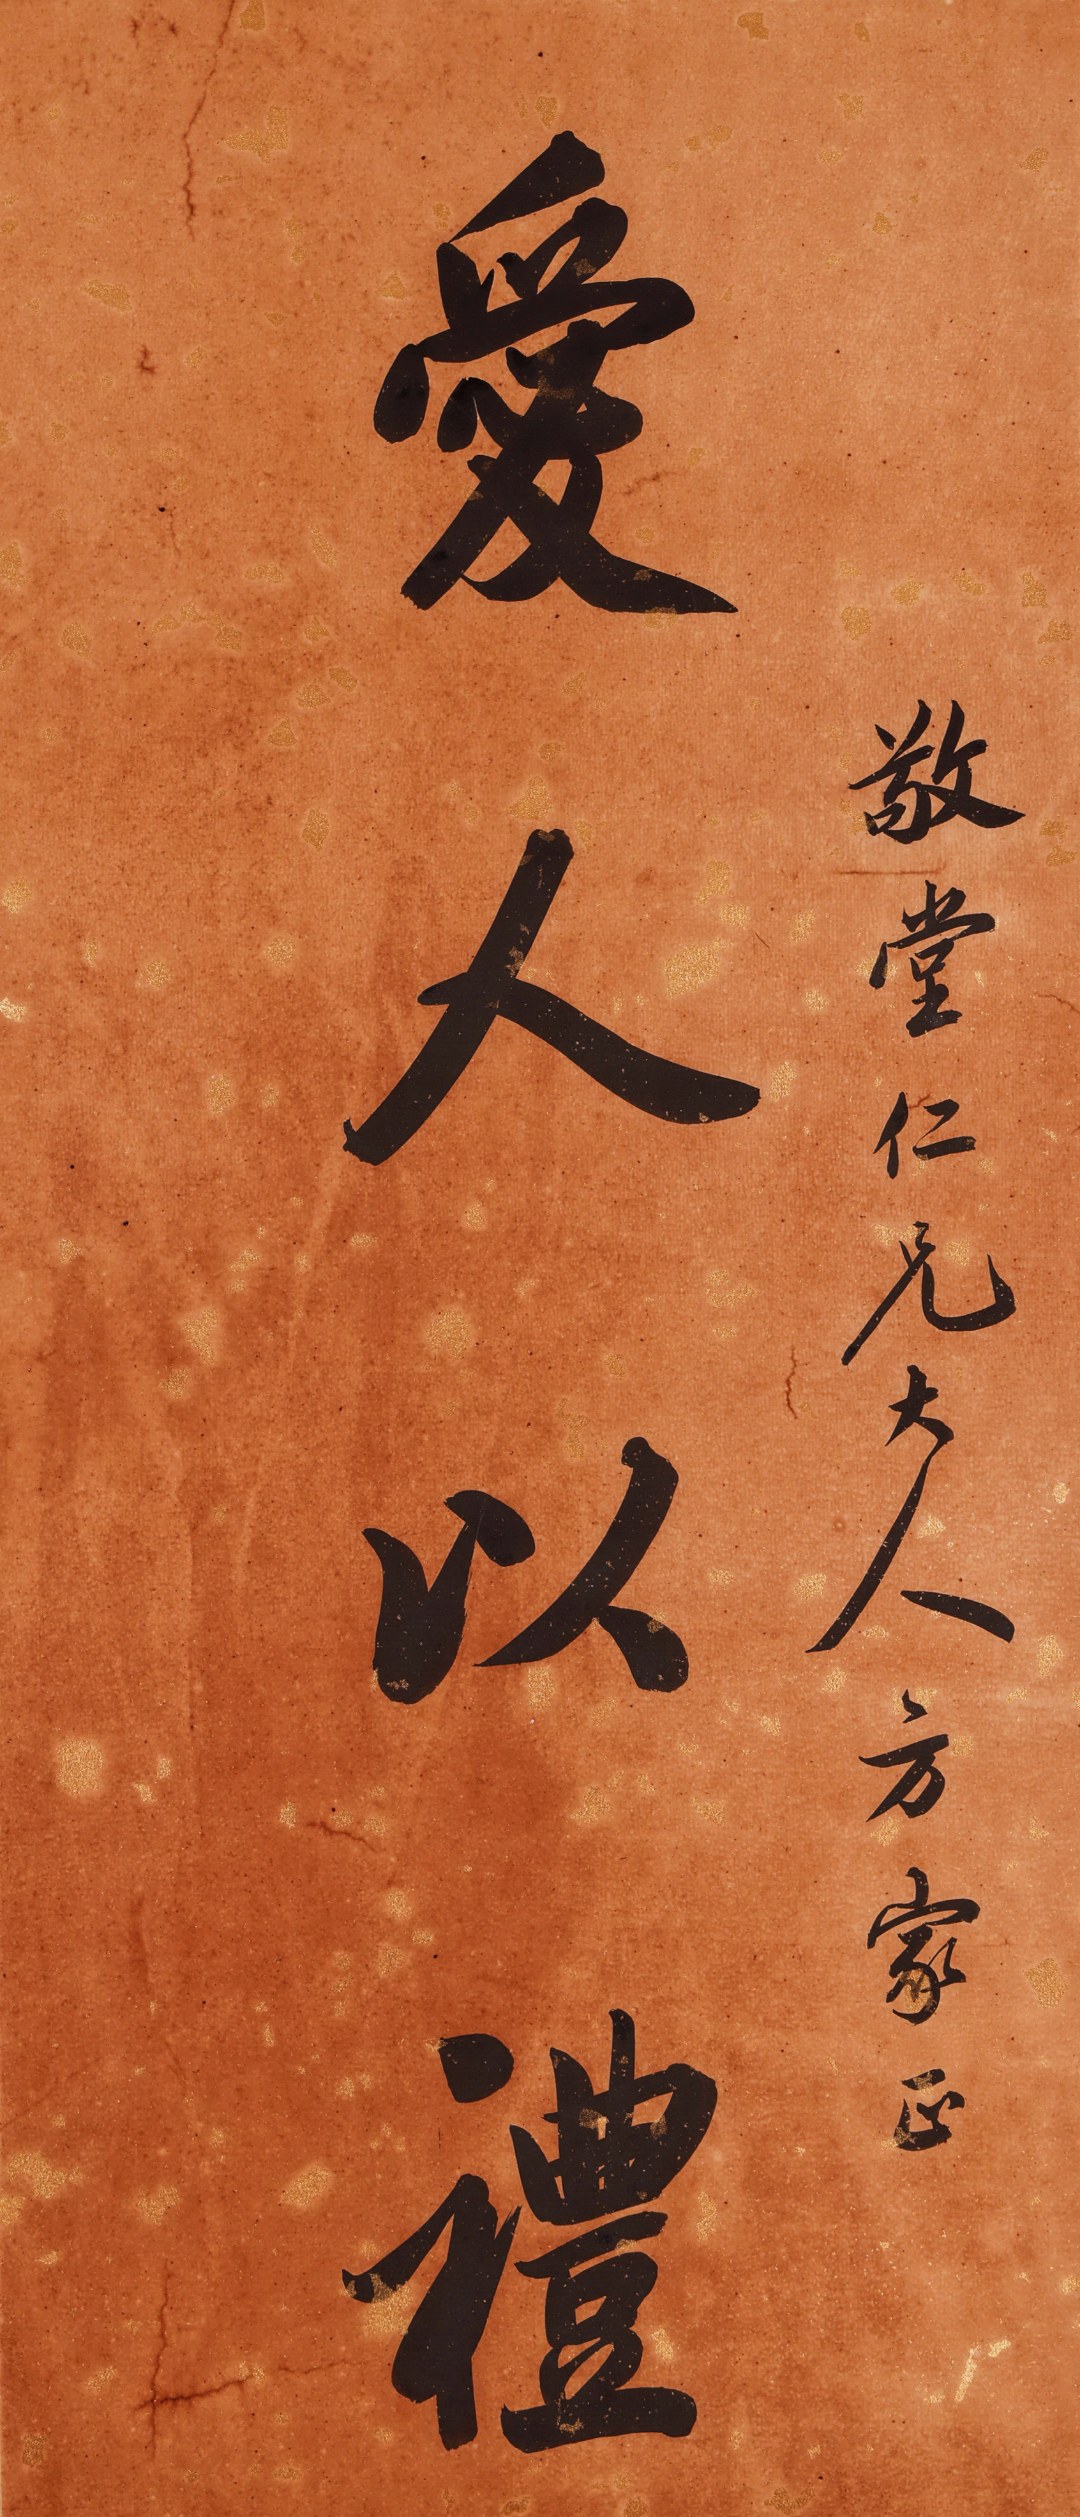 敬堂仁兄大人方家正
愛人以禮